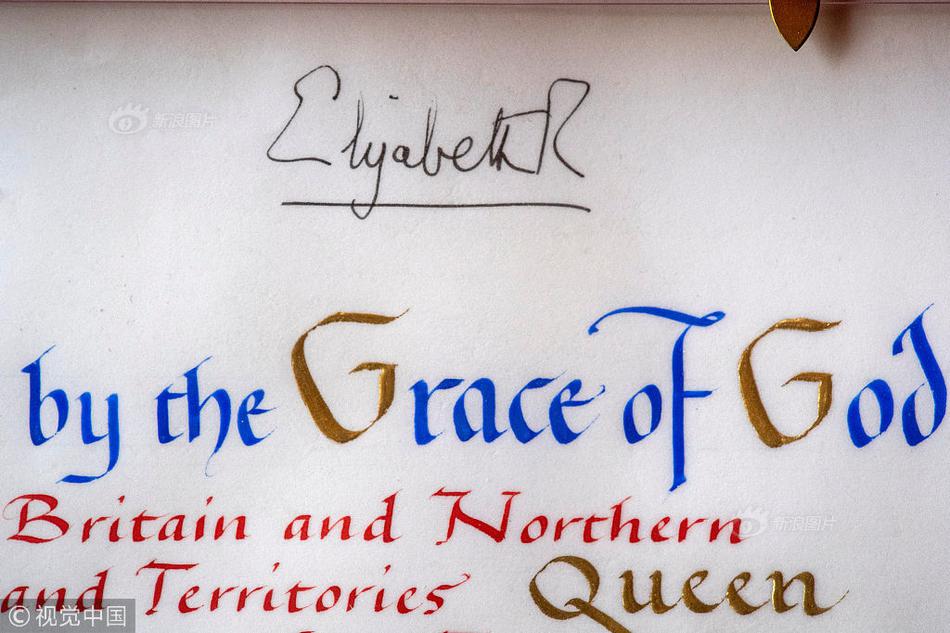 新浪图片
Elizabeth R
by the Grace of God
Britain and Northern
新浪图片
and Territories Queen
© 视觉中国